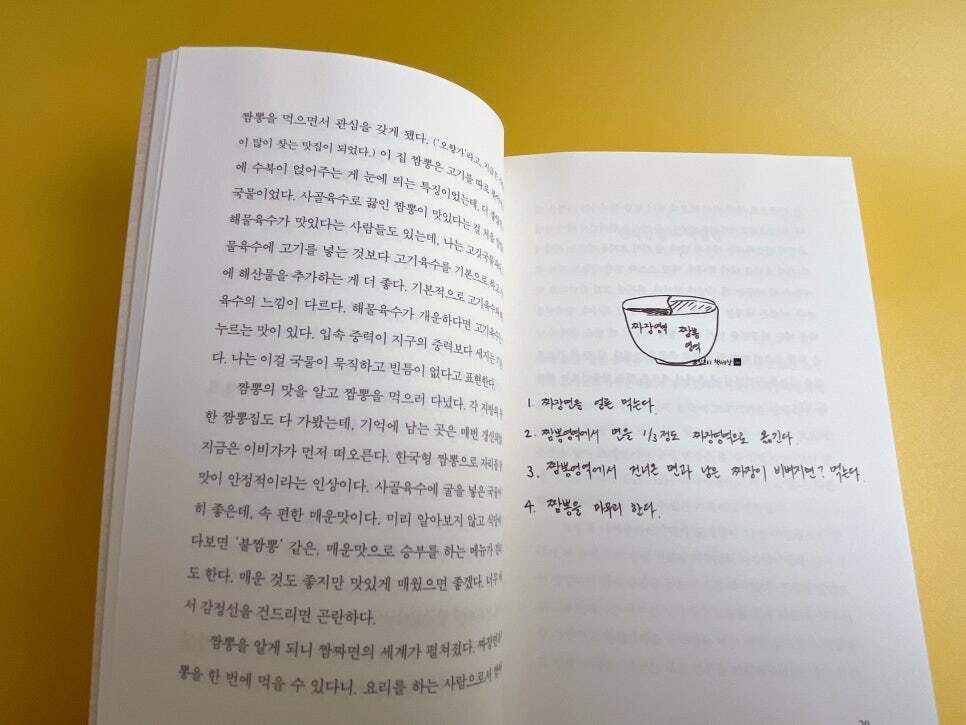 짬뽕을 먹으면서 관심을 갖게 됐다. ('오항가'라고, 지금은
이 많이 찾는 맛집이 되었다.) 이 집 짬뽕은 고기를 따로
에 수북이 얹어주는 게 눈에 띄는 특징이었는데, 더
국물이었다. 사골육수로 끓인 짬뽕이 맛있다는 걸 처음
해물육수가 맛있다는 사람들도 있는데, 나는
물육수에 고기를 넣는 것보다 고기육수를 기본으로 하고
에 해산물을 추가하는 게 더 좋다. 기본적으로 고기육수와
육수의 느낌이 다르다. 해물육수가 개운하다면 고기육수는
누르는 맛이 있다. 입속 중력이 지구의 중력보다 세지는
다. 나는 이걸 국물이 묵직하고 빈틈이 없다고 표현한다.
짬뽕의 맛을 알고 짬뽕을 먹으러 다녔다. 각 지방의
한 짬뽕집도 다 가봤는데, 기억에 남는 곳은 매번
지금은 이비가가 먼저 떠오른다. 한국형 짬뽕으로 자리를
맛이 안정적이라는 인상이다. 사골육수에 굴을 넣은
히 좋은데, 속 편한 매운맛이다. 미리 알아보지 않고
다보면 '불짬뽕' 같은, 매운맛으로 승부를 하는 메뉴가
도 한다. 매운 것도 좋지만 맛있게 매웠으면 좋겠다. 너무
서 감정선을 건드리면 곤란하다.
짬뽕을 알게 되니 짬짜면의 세계가 펼쳐졌다. 짜장면과
뽕을 한 번에 먹을 수 있다니. 요리를 하는 사람으로서
짜장영역
짬뽕
영역
1. 짜장면을 얼른 먹는다.
2. 짬뽕영역에서 면을 1/3정도 짜장영역으로 옮긴다.
3. 짬뽕영역에서 건너온 면과 남은 짜장이 비벼지면? 먹는다.
4. 짬뽕을 마무리 한다.